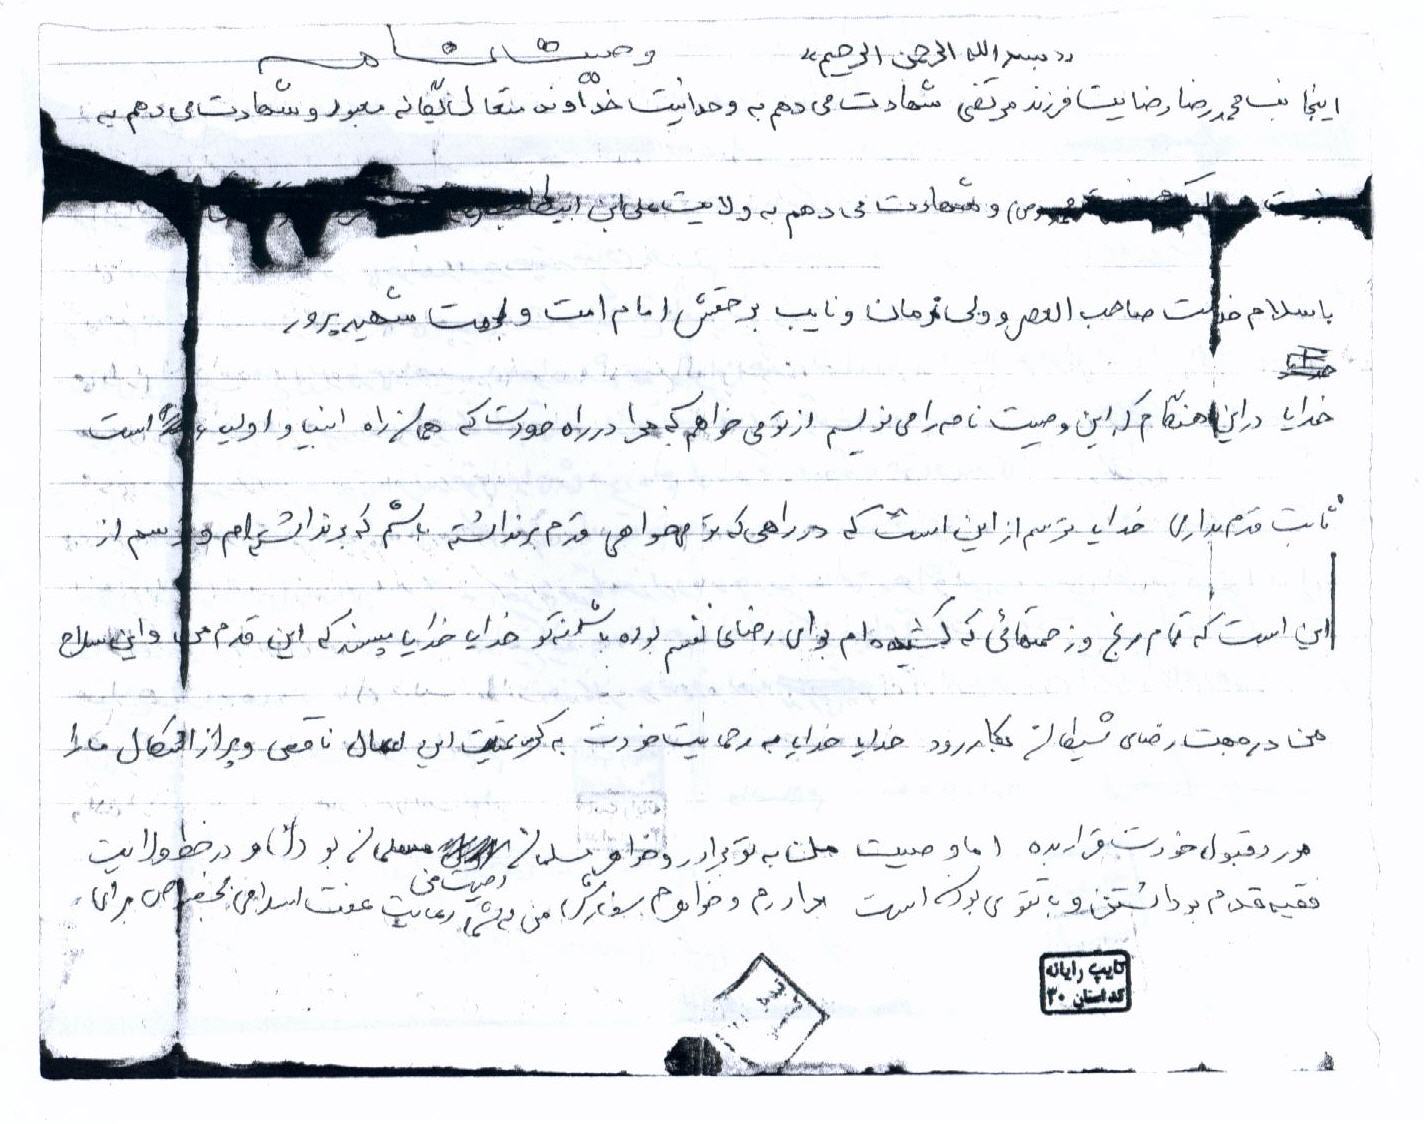 «بسم الله الرحمن الرحیم» وصیت نامه
اینجانب محمد رضا رضایت فرزند مرتضی شهادت می دهم به وحدانیت خداوند متعال یگانه معبود و شهادت می دهم به
نبوت و شهادت می دهم به ولایت علی ابن ابیطالب
با سلام خدمت صاحب العصر و ولی زمان و نایب بر حقش امام امت و امت شهید پرور
خدایا در این هنگام که این وصیت نامه را می نویسم از تو می خواهم که مرا در راه خودت که همان راه انبیا و اولیاء است
ثابت قدم بداری خدایا ترسم از این است که در راهی که تو میخواهی قدم برنداشته باشم که برنداشته ام و ترسم از
این است که تمام رنج و زحمتهائی که کشیده ام برای رضای نفسم بوده باشد نه تو خدایا خدایا مپسند که این قدم من و این سلاح
من در جهت رضای شیطان بکار رود خدایا خدایا به رحمانیت خودت به کرمیتت این اعمال ناقص و پر از اشکال ما را
مورد قبول خودت قرار بده اما وصیت من به تو برادر و خواهر مسلمان مسلمان بودن و در خط ولایت
فقیه قدم برداشتن و با تقوی بودن است برادرم و خواهرم سفارش من وصیت من به شما رعایت عفت اسلامی بخصوص برای
تایپ رایانه
کد استان ۳۰